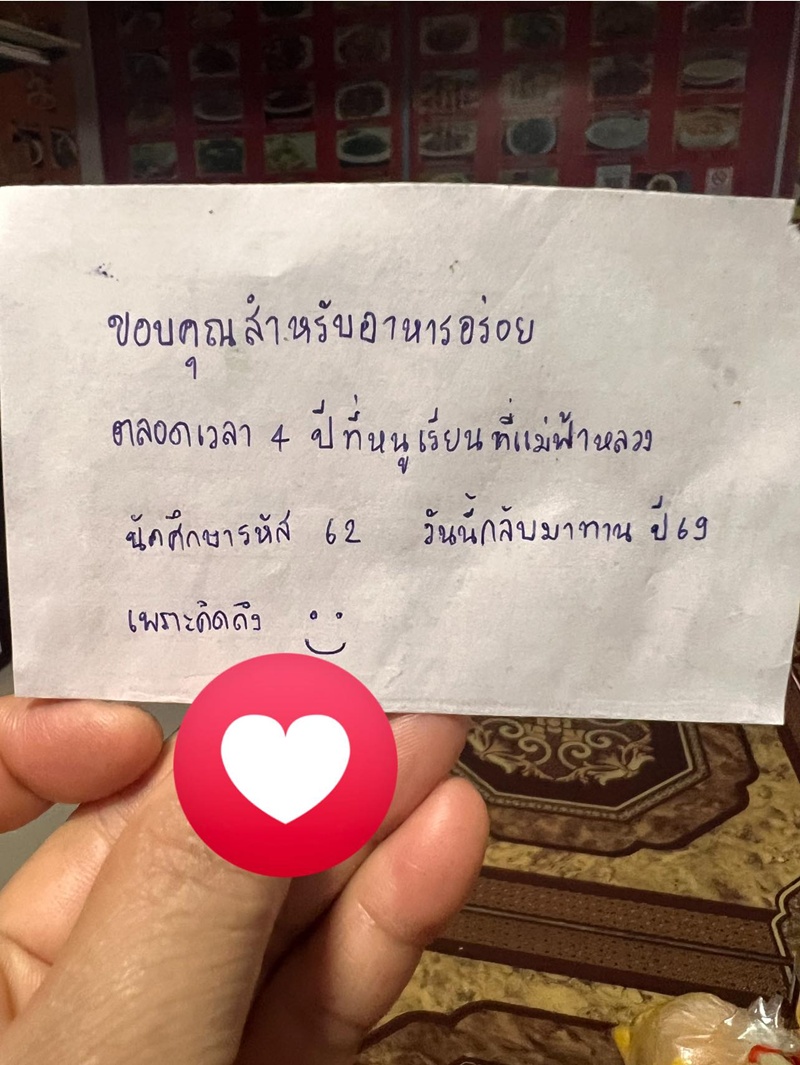 ขอบคุณสำหรับอาหารอร่อย
ตลอดเวลา 4 ปีที่หนูเรียนที่แม่ฟ้าหลวง
นักศึกษารหัส 62 วันนี้กลับมาทาน ปี 69
เพราะคิดถึง